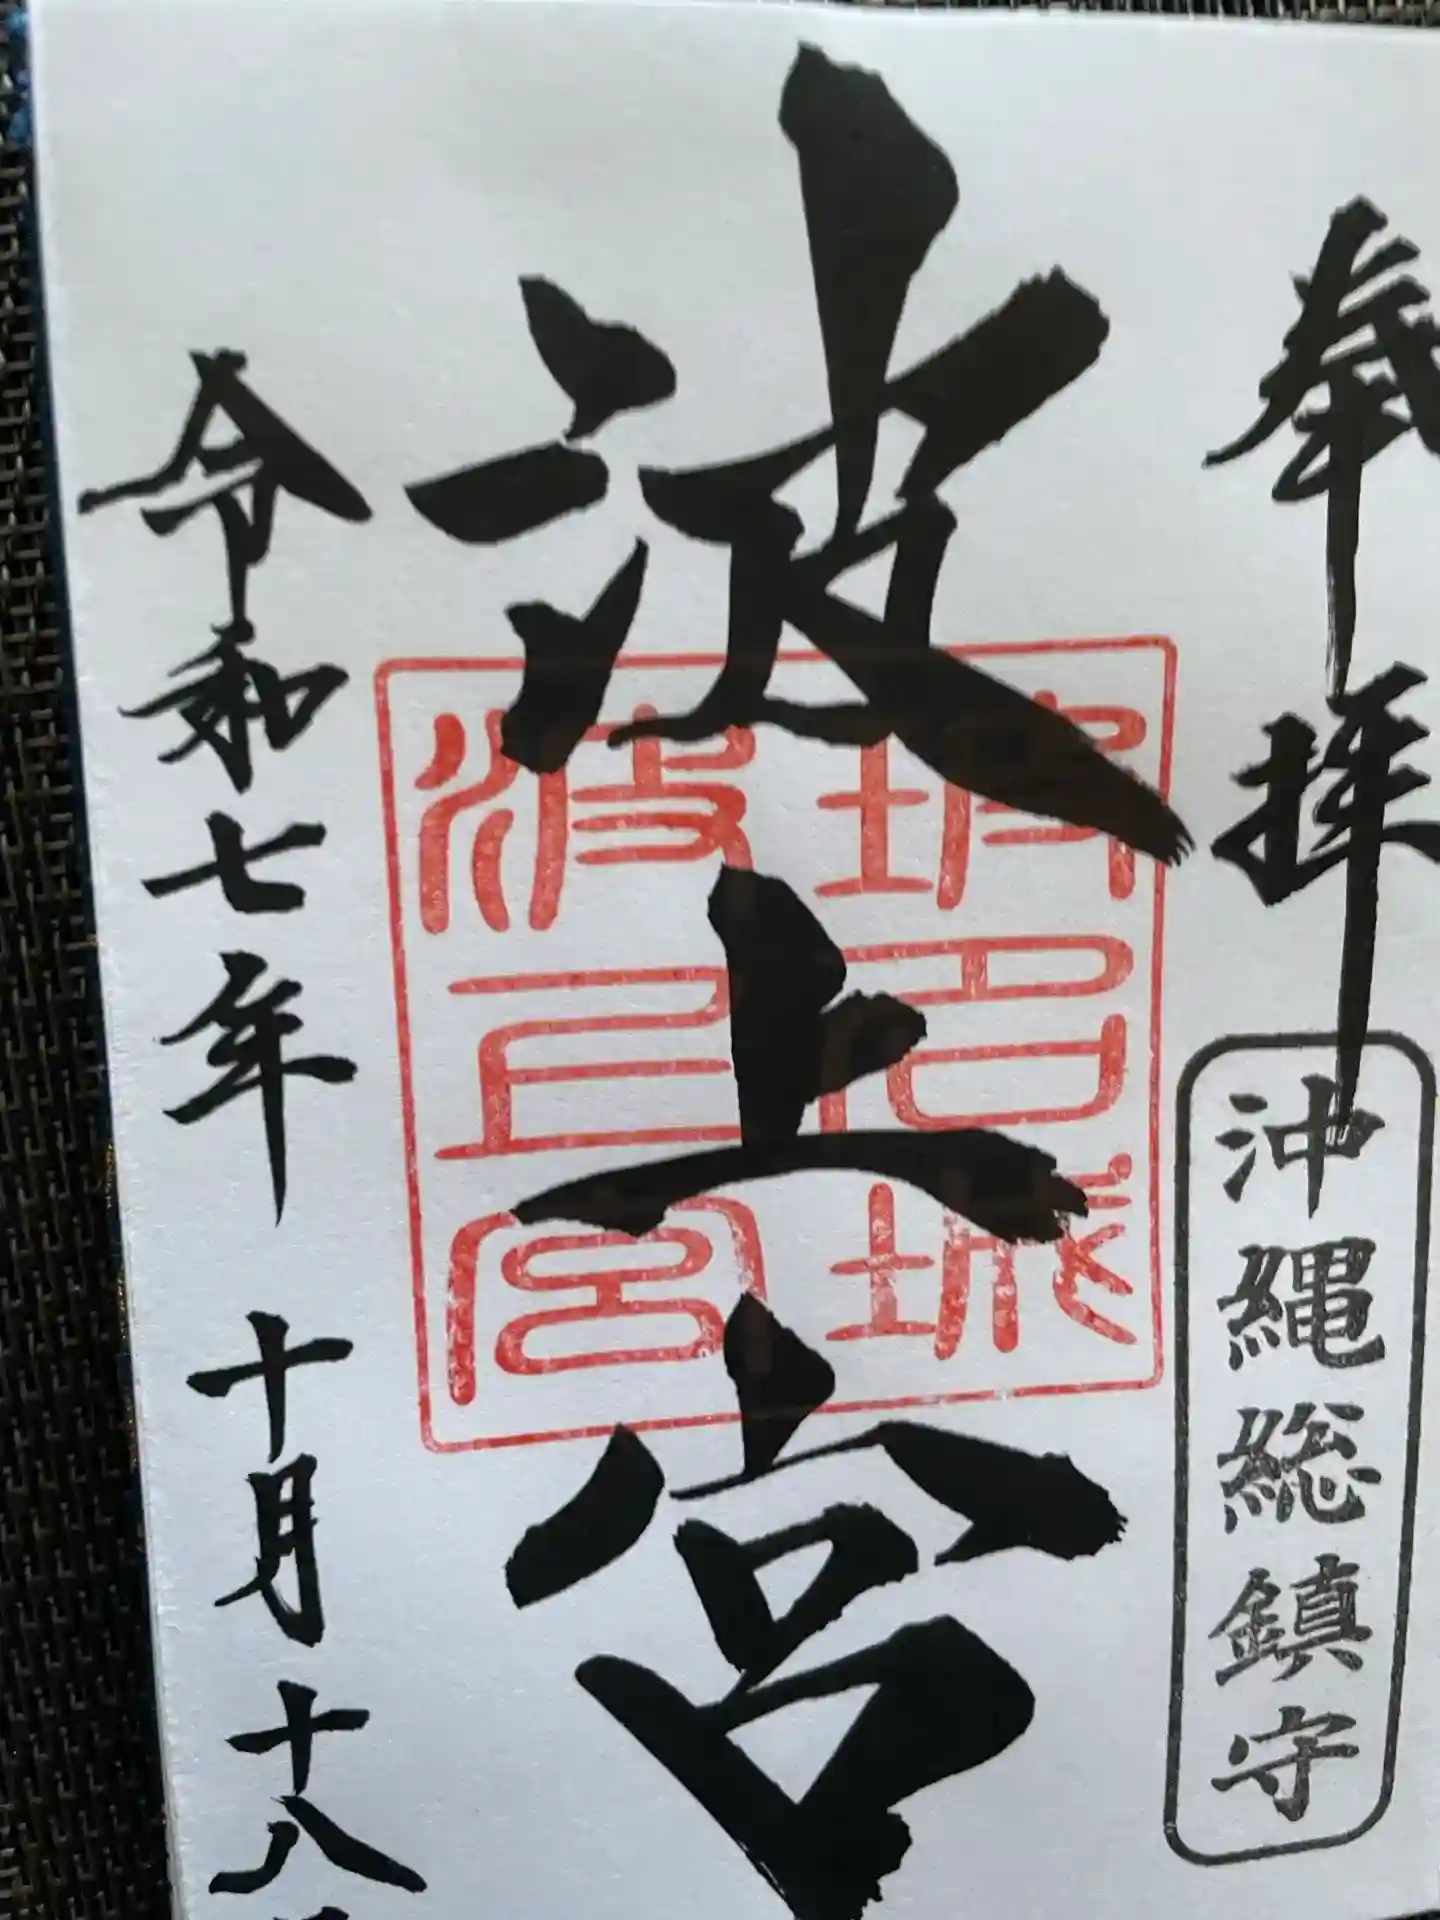 奉拝
沖縄総鎮守
波上宮
琉球国
波上宮
令和七年 十月十八日